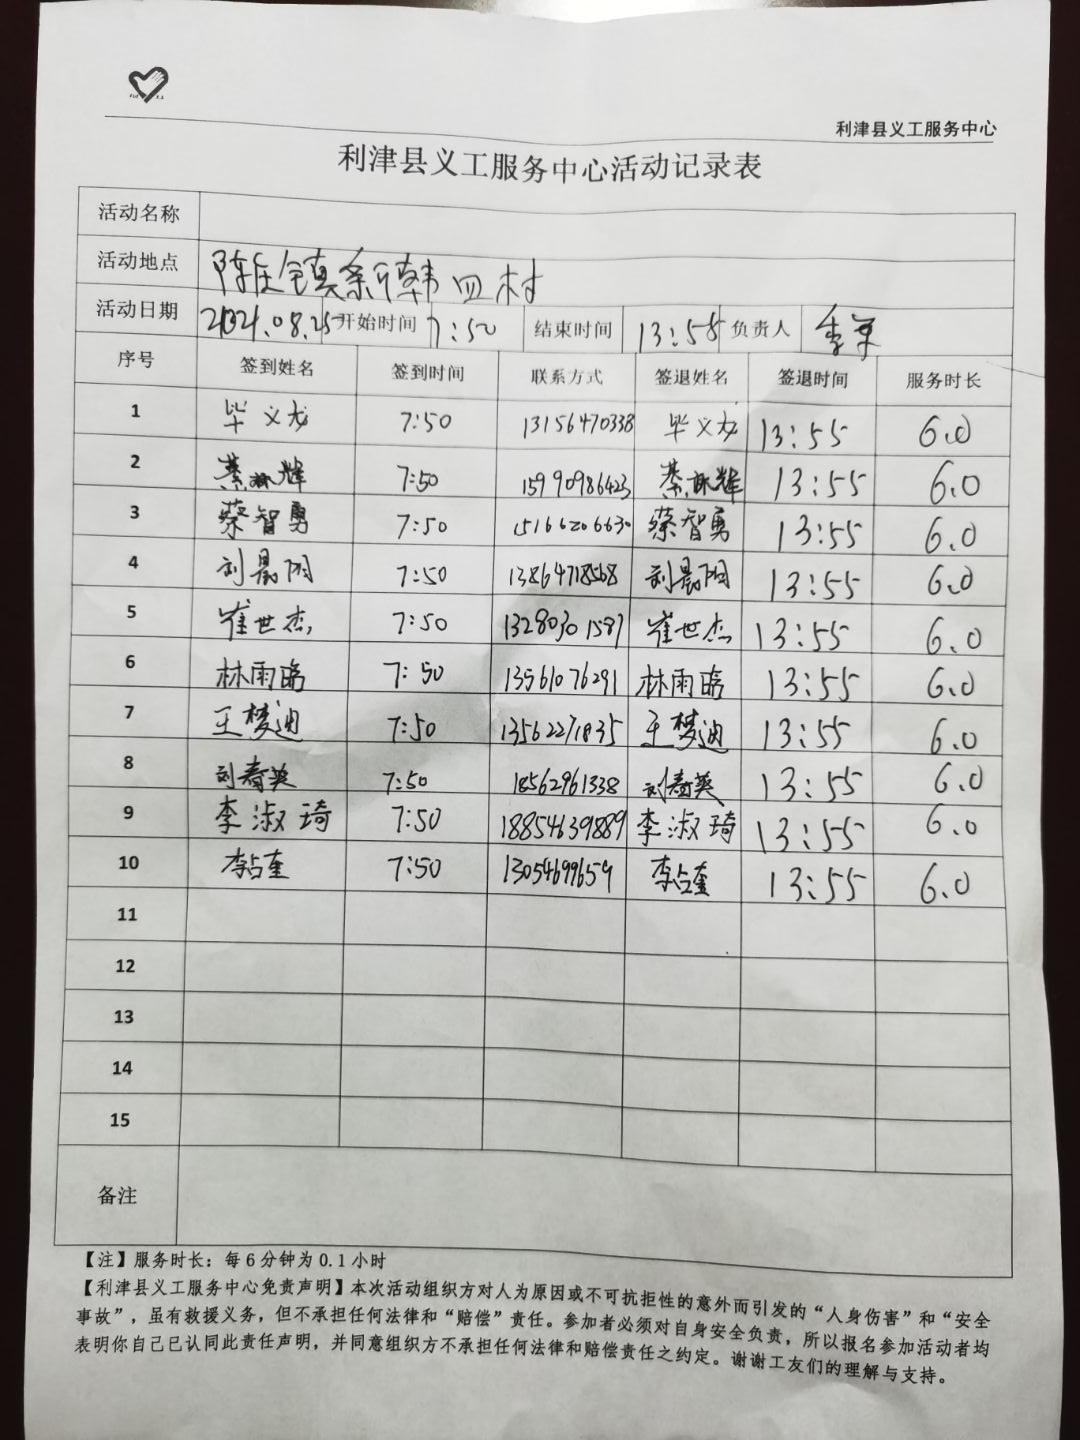 利津县义工服务中心
利津县义工服务中心活动记录表
活动名称
活动地点 陈庄镇 韩四村
活动日期 2021.08.25 开始时间 7:50 结束时间 13:55 负责人
序号 签到姓名 签到时间 联系方式 签退姓名 签退时间 服务时长
1 毕义龙 7:50 13156470338 毕义龙 13:55 6.0
2 綦琳辉 7:50 15990986423 綦琳辉 13:55 6.0
3 蔡智勇 7:50 15166206630 蔡智勇 13:55 6.0
4 刘晨阳 7:50 13864718568 刘晨阳 13:55 6.0
5 崔世杰 7:50 13280301587 崔世杰 13:55 6.0
6 林雨晗 7:50 13561076291 林雨晗 13:55 6.0
7 王梦迪 7:50 13562271835 王梦迪 13:55 6.0
8 刘春英 7:50 18562961338 刘春英 13:55 6.0
9 李淑琦 7:50 18854639889 李淑琦 13:55 6.0
10 李占奎 7:50 13054699659 李占奎 13:55 6.0
11
12
13
14
15
备注
【注】服务时长：每6分钟为0.1小时
【利津县义工服务中心免责声明】本次活动组织方对人为原因或不可抗拒性的意外而引发的“人身伤害”和“安全
事故”，虽有救援义务，但不承担任何法律和“赔偿”责任。参加者必须对自身安全负责，所以报名参加活动者均
表明你自己已认同此责任声明，并同意组织方不承担任何法律和赔偿责任之约定。谢谢工友们的理解与支持。